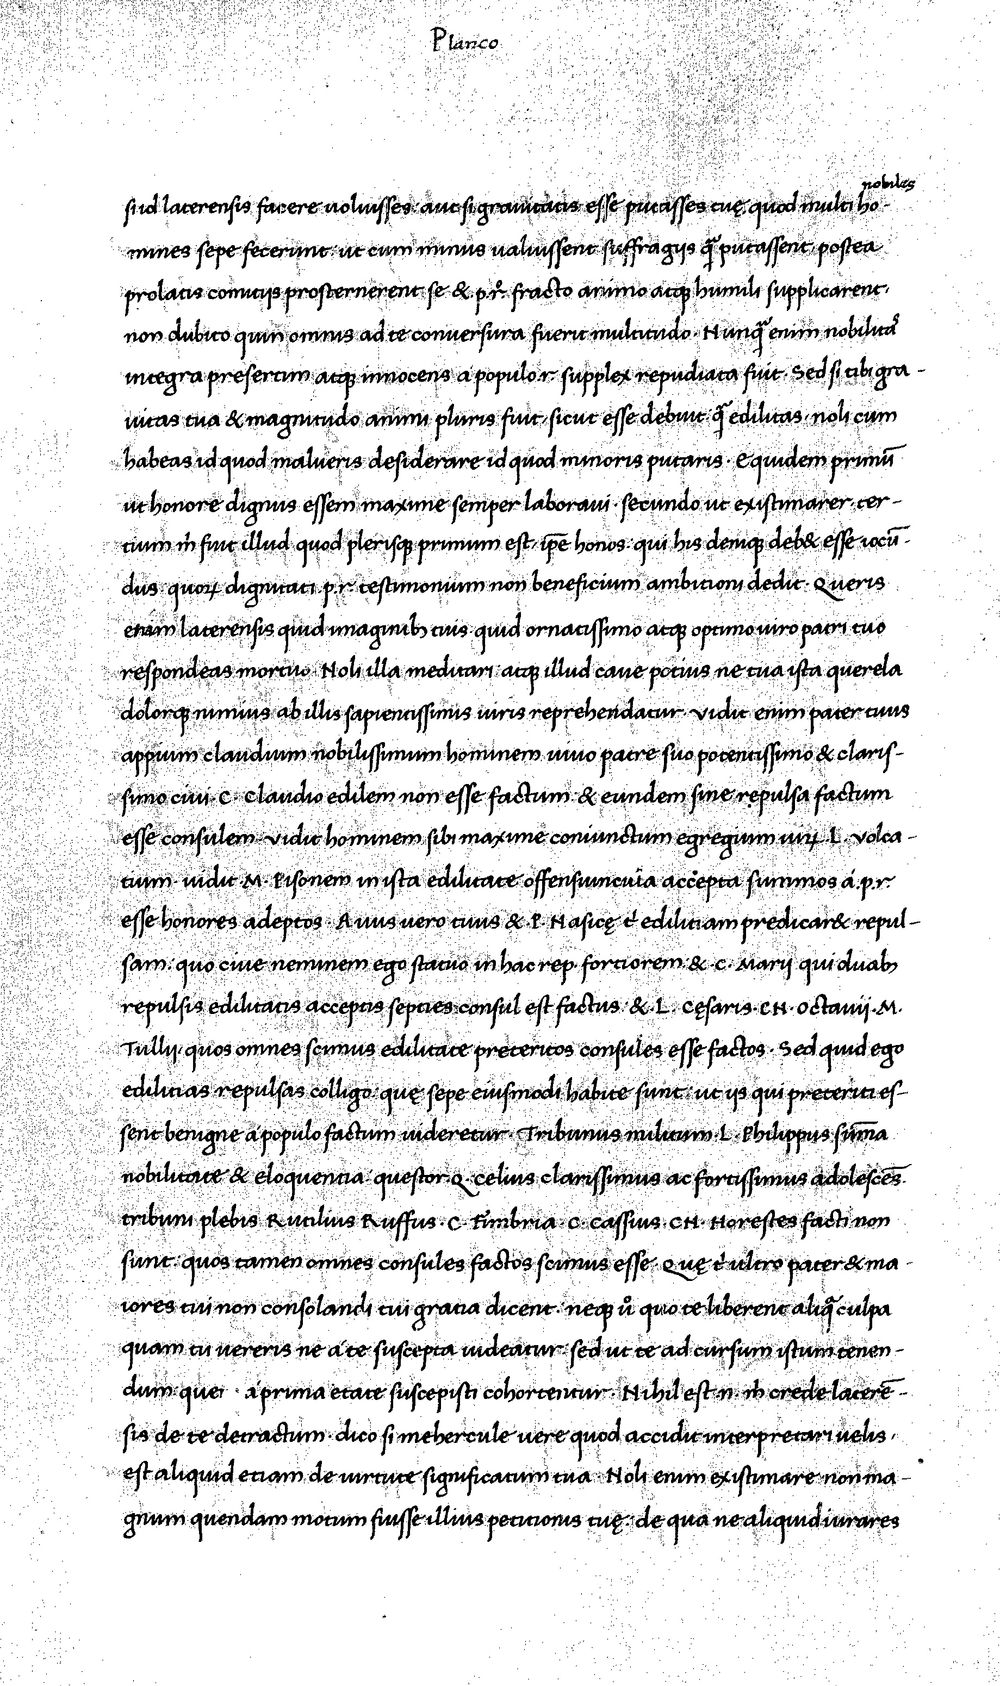 Planco
nobiles
si id laterensis facere voluisses. aut si gravitatis esse putasses tuę. quod multi ho-
mines sepe fecerunt. ut cum minus valuissent suffragijs q̃ putassent. postea
prolatis comitijs prosternerent se & p.r. fracto animo atq; humili supplicarent.
non dubito quin omnis ad te conversura fuerit multitudo. Nunq̃ enim nobilitas
integra presertim atq; innocens a populo.r. supplex repudiata fuit. Sed si tibi gra-
vitas tua & magnitudo animi pluris fuit. sicut esse debuit. q̃ edilitas. noli cum
habeas id quod malueris desiderare id quod minoris putaris. Equidem primū
ut honore dignus essem maxime semper laboravi. secundo ut existimarer. ter-
tium m̊ fuit illud quod plerisq; primum est. ip̄e honos. qui his deniq; deb& esse iocū-
dus. quoꝝ dignitati .p.r. testimonium non beneficium ambitioni dedit. Queris
etiam laterensis quid imaginib; tuis. quid ornatissimo atq; optimo viro patri tuo
respondeas mortuo. Noli illa meditari. atq; illud cave potius ne tua ista querela
dolorq; nimius ab illis sapientissimis viris reprehendatur. Vidit enim pater tuus
appium claudium nobilissimum hominem vivo patre suo potentissimo & claris-
simo civi. C. Claudio edilem non esse factum. & eundem sine repulsa factum
esse consulem. Vidit hominem sibi maxime coniunctum egregium virꝝ L. Volca-
tium. vidit M. Pisonem in ista edilitate offensiuncula accepta summos á .p.r.
esse honores adeptos. Avus vero tuus & P. Nasicę t́ edilitiam predicar& repul-
sam. quo cive neminem ego statuo in hac rep. fortiorem. & C. Marij qui duab;
repulsis edilitatis acceptis septies consul est factus. & L. Cęsaris. CN. Octavij. M.
Tullij. quos omnes scimus edilitate preteritos consules esse factos. Sed quid ego
edilitias repulsas colligo. quę sepe eiusmodi habite sunt. ut ijs qui preteriti es-
sent benigne á populo factum videretur. Tribunus militum. L. Philippus sūma
nobilitate & eloquentia. questor. Q. celius clarissimus ac fortissimus adolescēs.
tribuni plebis Rutilius Ruffus. C. Fimbria. C. Cassius. CN. Horestes facti non
sunt. quos tamen omnes consules factos scimus esse. Quę t́ ultro pater & ma-
iores tui non consolandi tui gratia dicent. neq; ů quo te liberent aliq̃ culpa
quam tu vereris ne á te suscepta videatur. sed ut te ad cursum istum tenen-
dum. quei á prima etate suscepisti cohortentur. Nihil est .n. m̊ crede laterē-
sis de te detractum. dico si mehercule vere quod accidit interpretari velis.
est aliquid etiam de virtute significatum tua. Noli enim existimare non ma-
gnum quendam motum fuisse illius petitionis tuę. de qua ne aliquid iurares